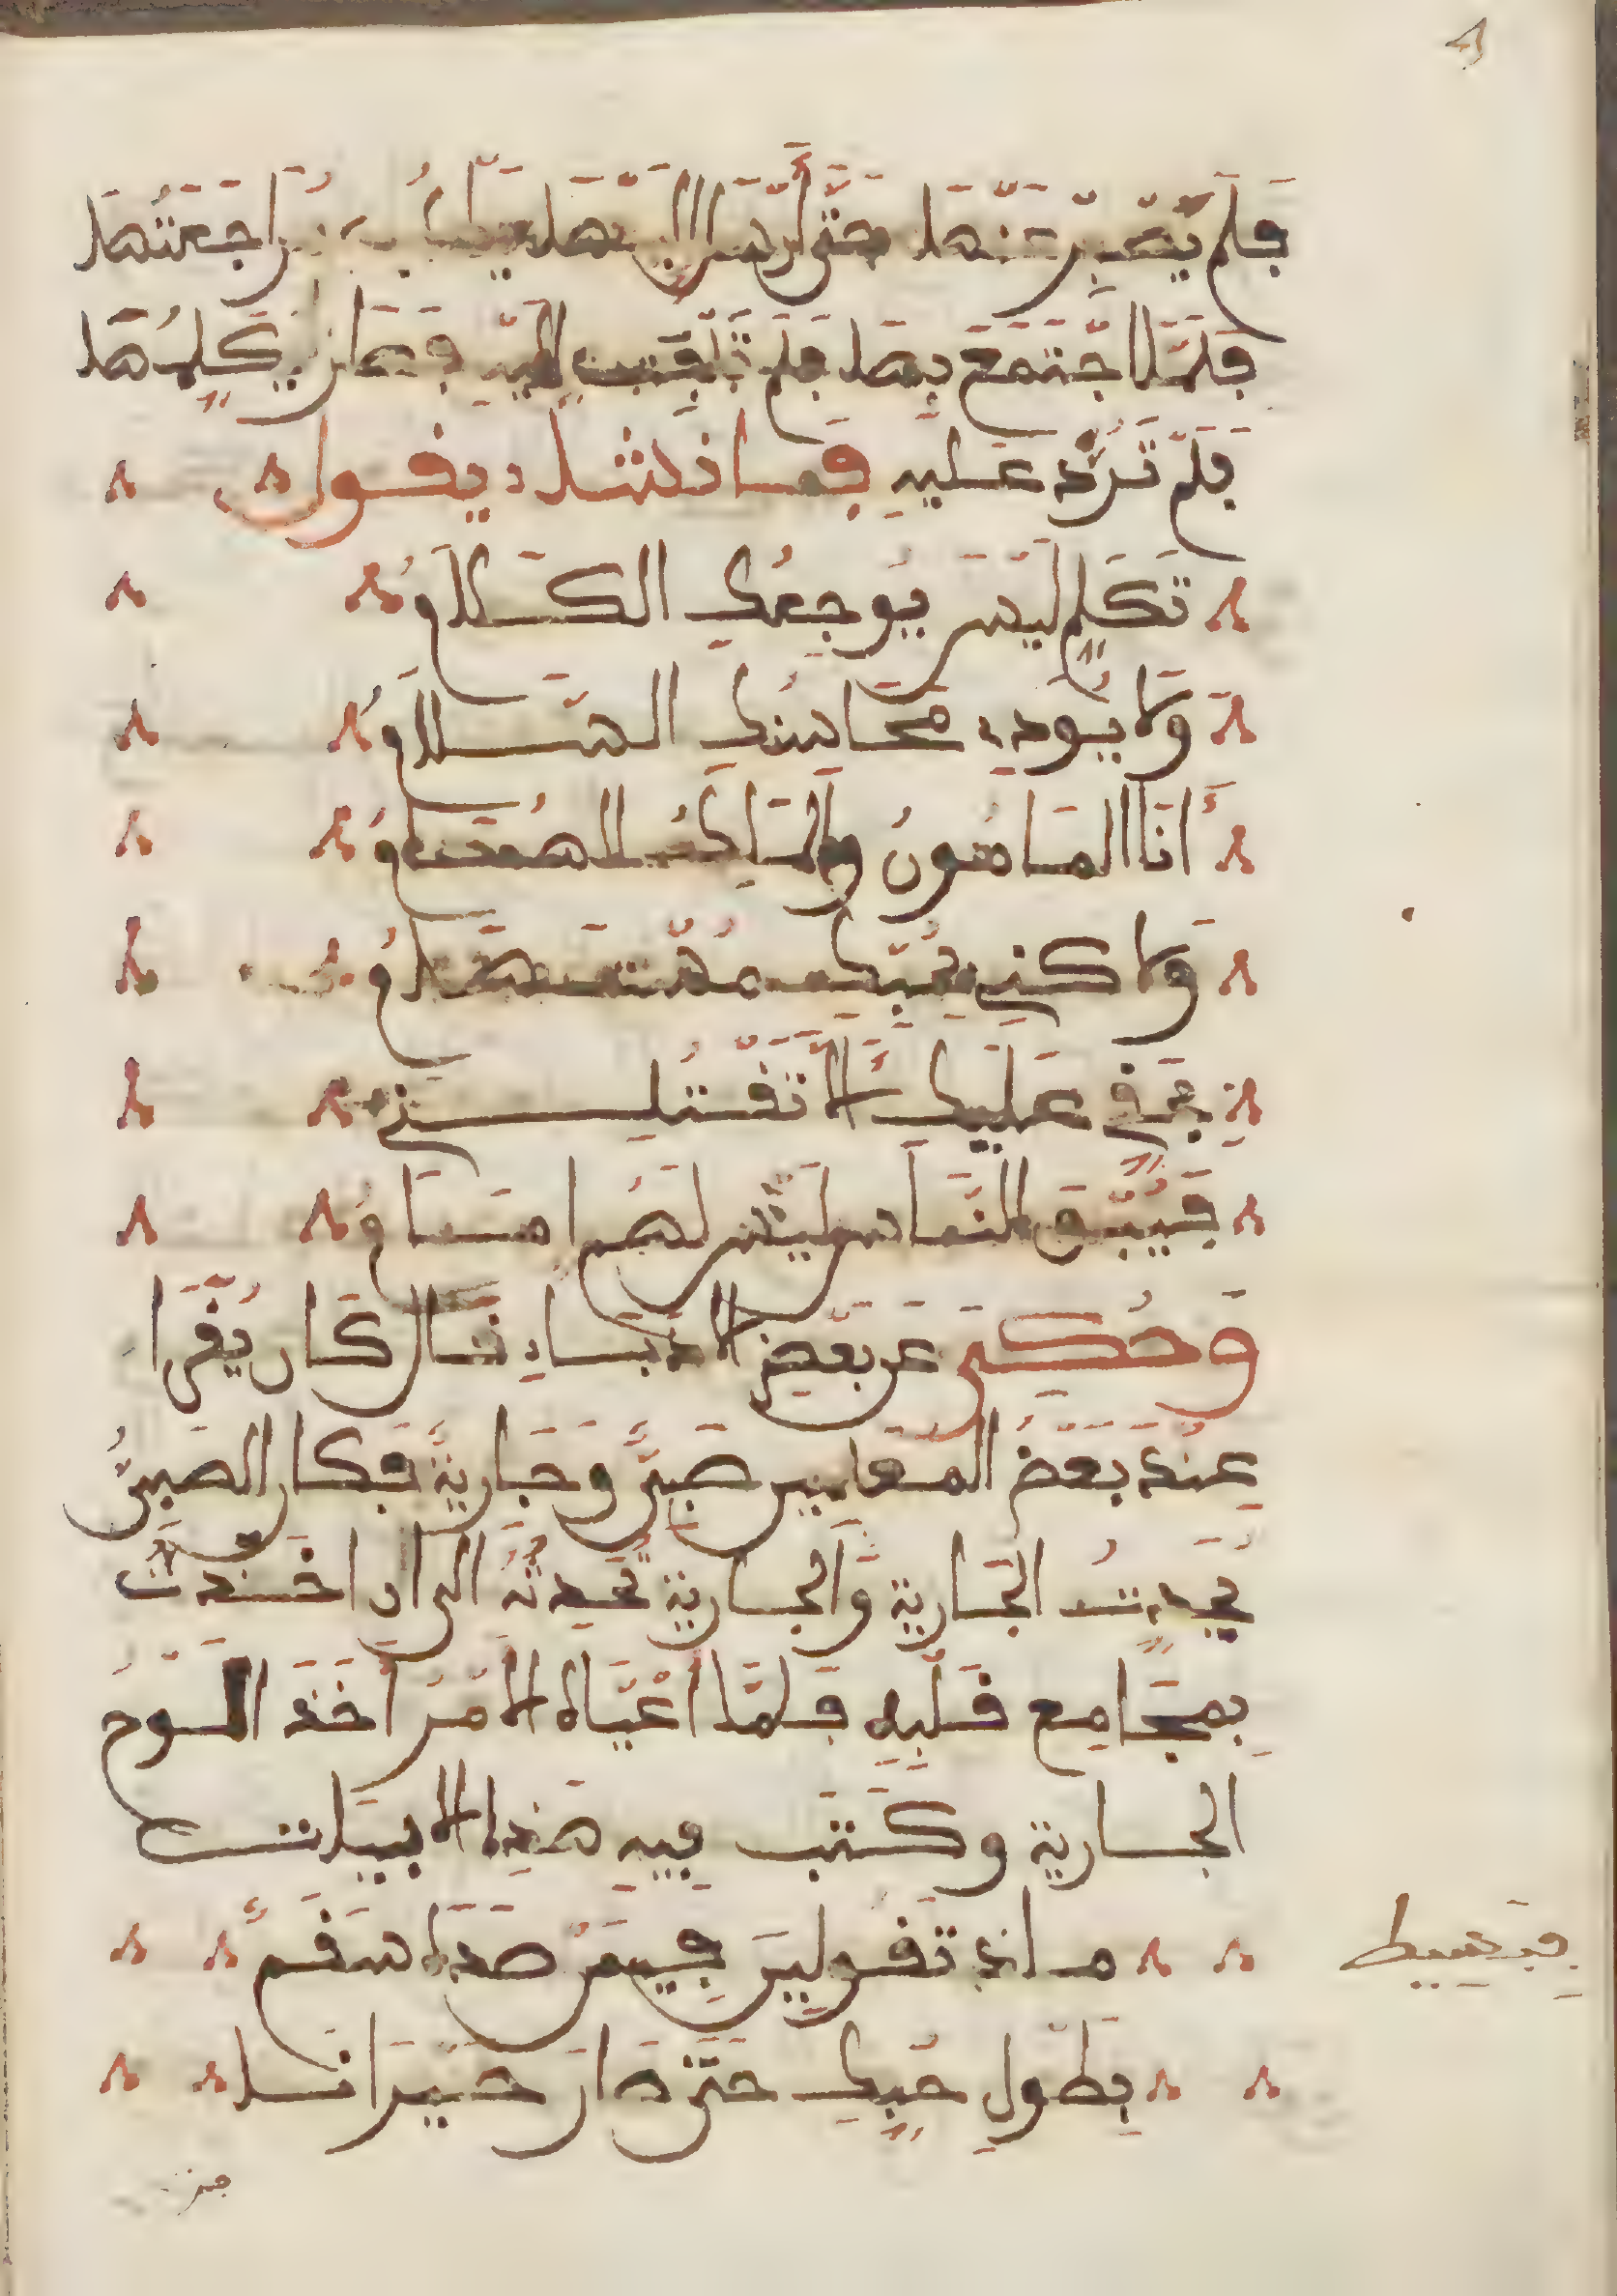 فلم يصبر عنها حتى أرسل إليها يطلب مراجعتها
فلما اجتمع بها فلم تلتفت إليه فصار يكلمها
فلم ترد عليه فما نشد يقول
تكلم ليس يوجعك الكلام
ولا يودي محاسنك السلام
أنا المامون والملك الهمام
ولاكني بحبك مستهام
يحق عليك ألا تقتليني
فيبق الناس ليس لهم إمام
وحكي عن بعض الأدباء قال كان يقرا
عند بعض المعلمين صبي وجارية فكان الصبي
يحدث الجارية والجارية تحدثه إلى ان اخذت
بمجامع قلبه فلما أعياه الأمر أخذ الوح
الجارية وكتب فيه هذه الأبيات
ماذ تقولين فيمن صده سقم
بطول حبك حتى صار حيرانا
بسيط